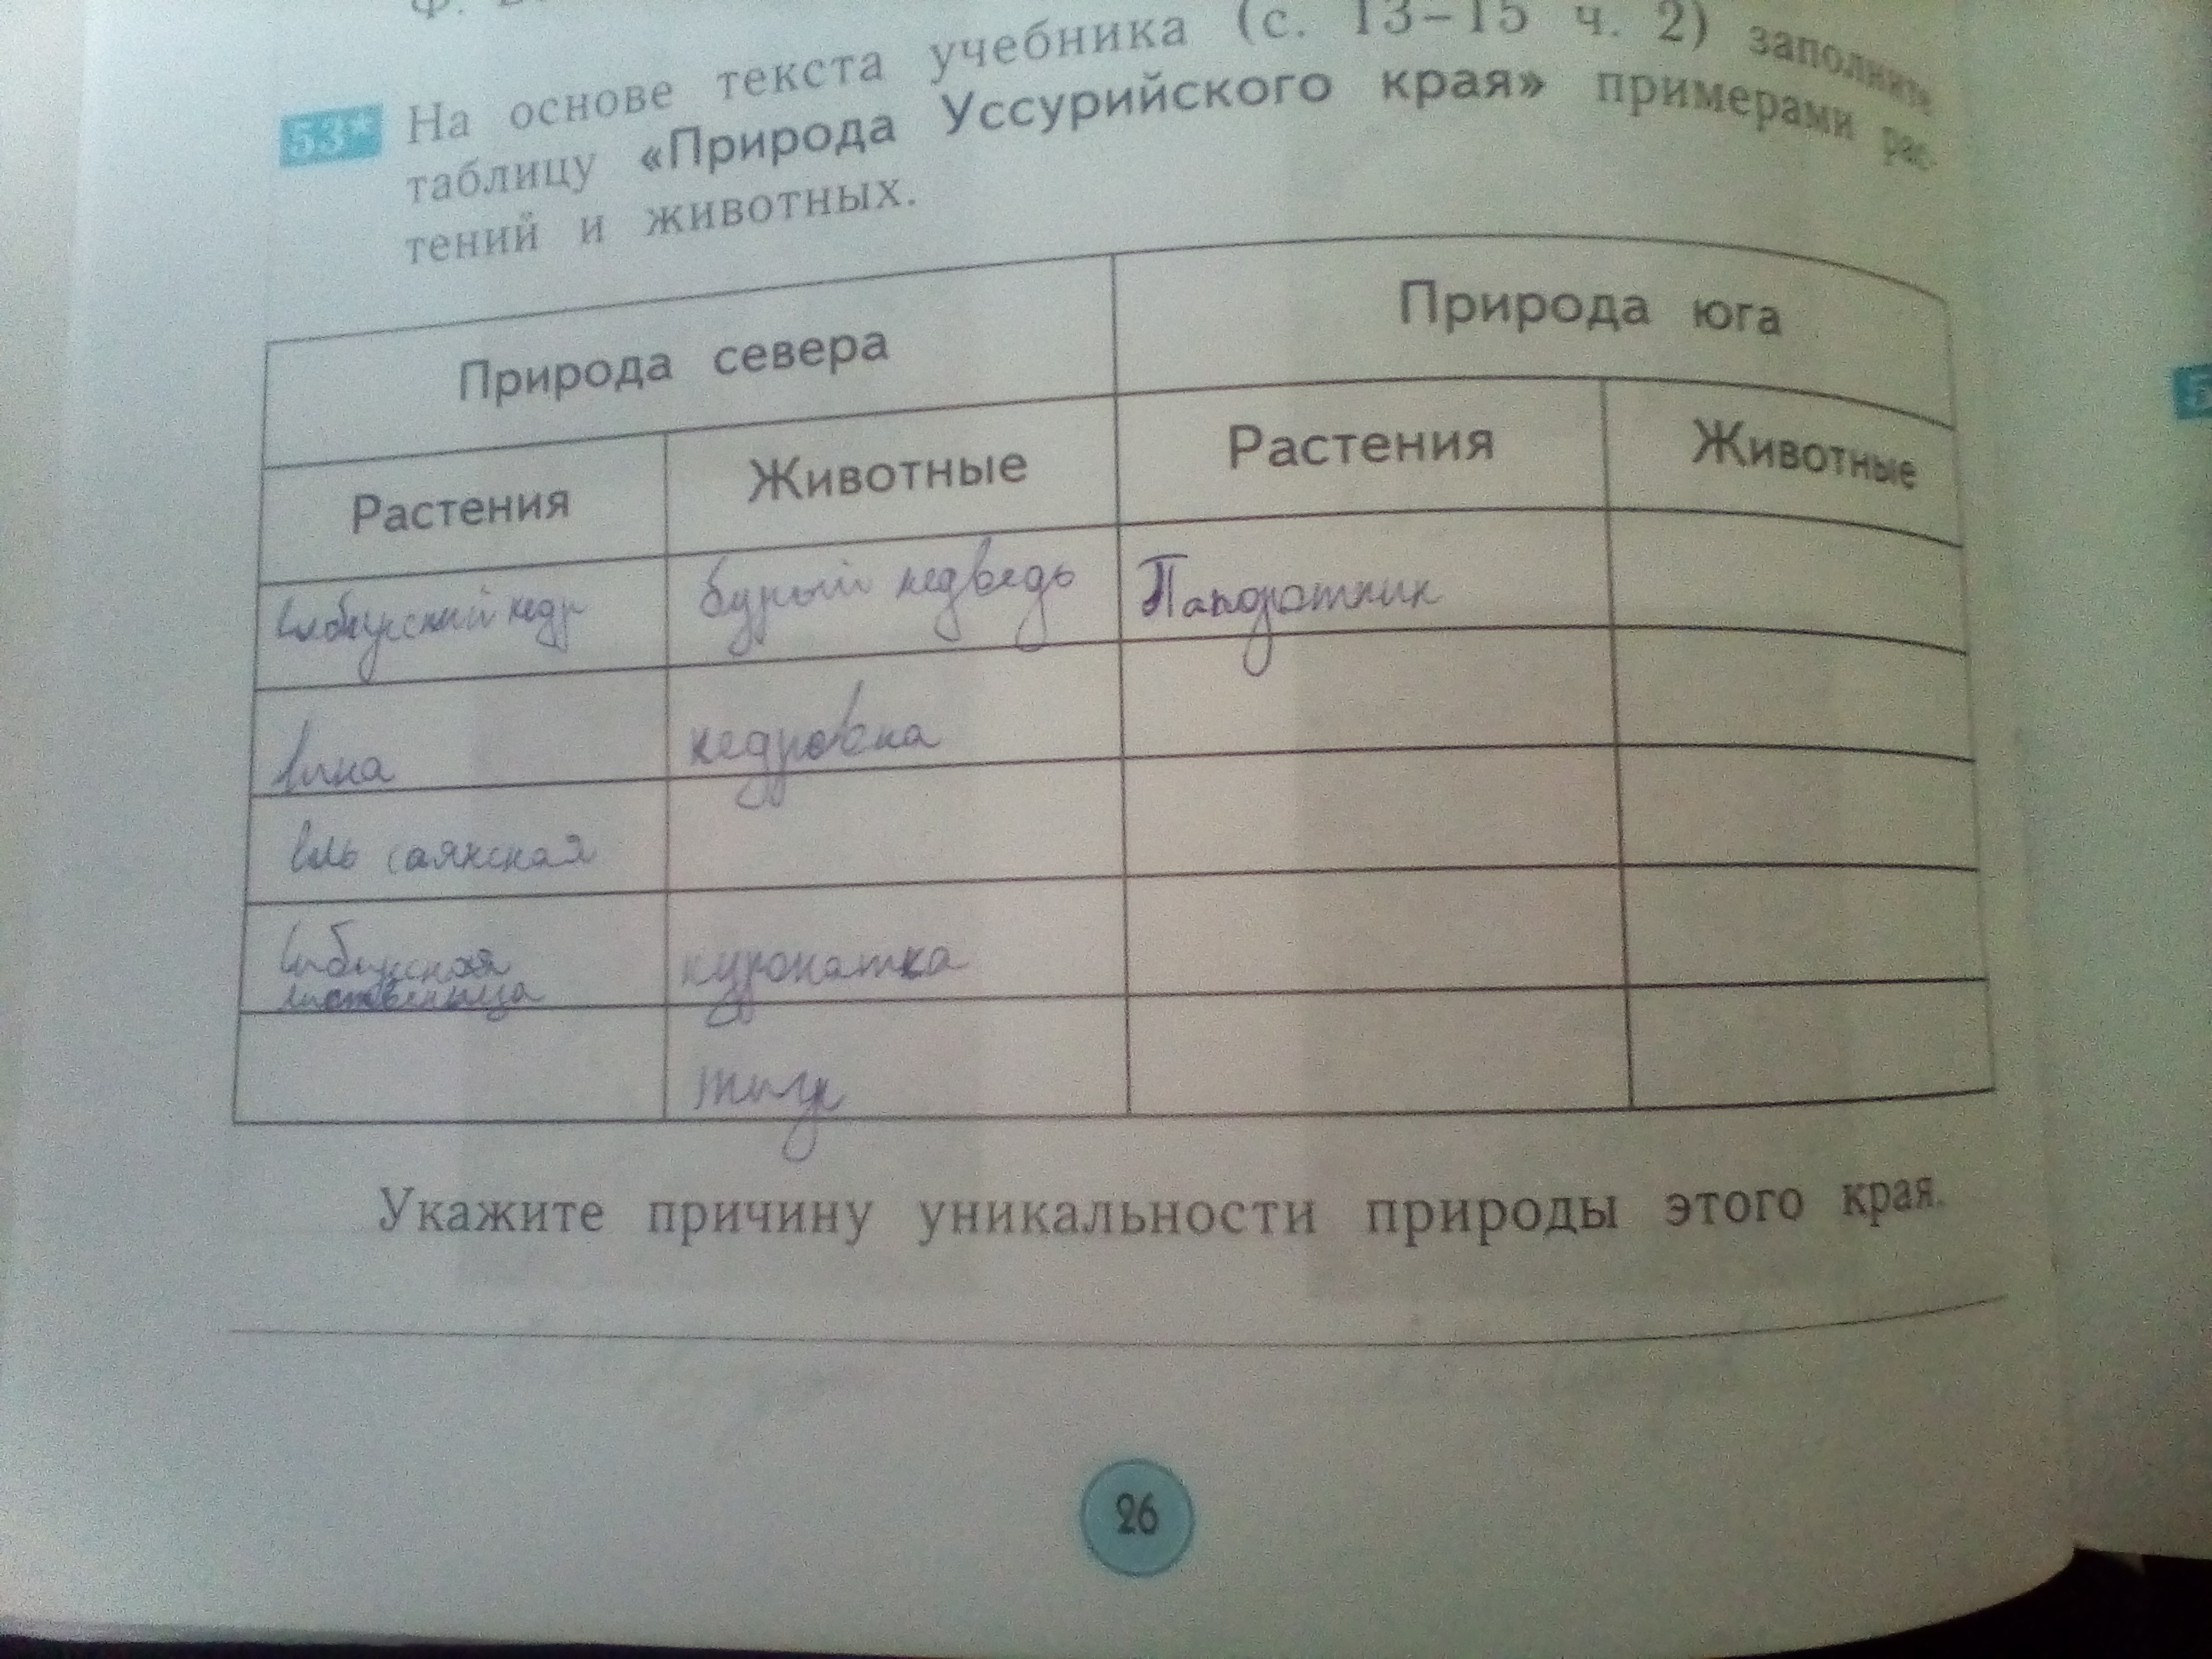 53* На основе текста учебника (с. 13–15 ч. 2) заполните
таблицу «Природа Уссурийского края» примерами рас-
тений и животных.
Природа севера Природа юга
Растения Животные Растения Животные
Сибирский кедр бурый медведь Папоротник
кедровка
Ель саянская
Сибирская куропатка
лиственница
тигр
Укажите причину уникальности природы этого края.
26
5